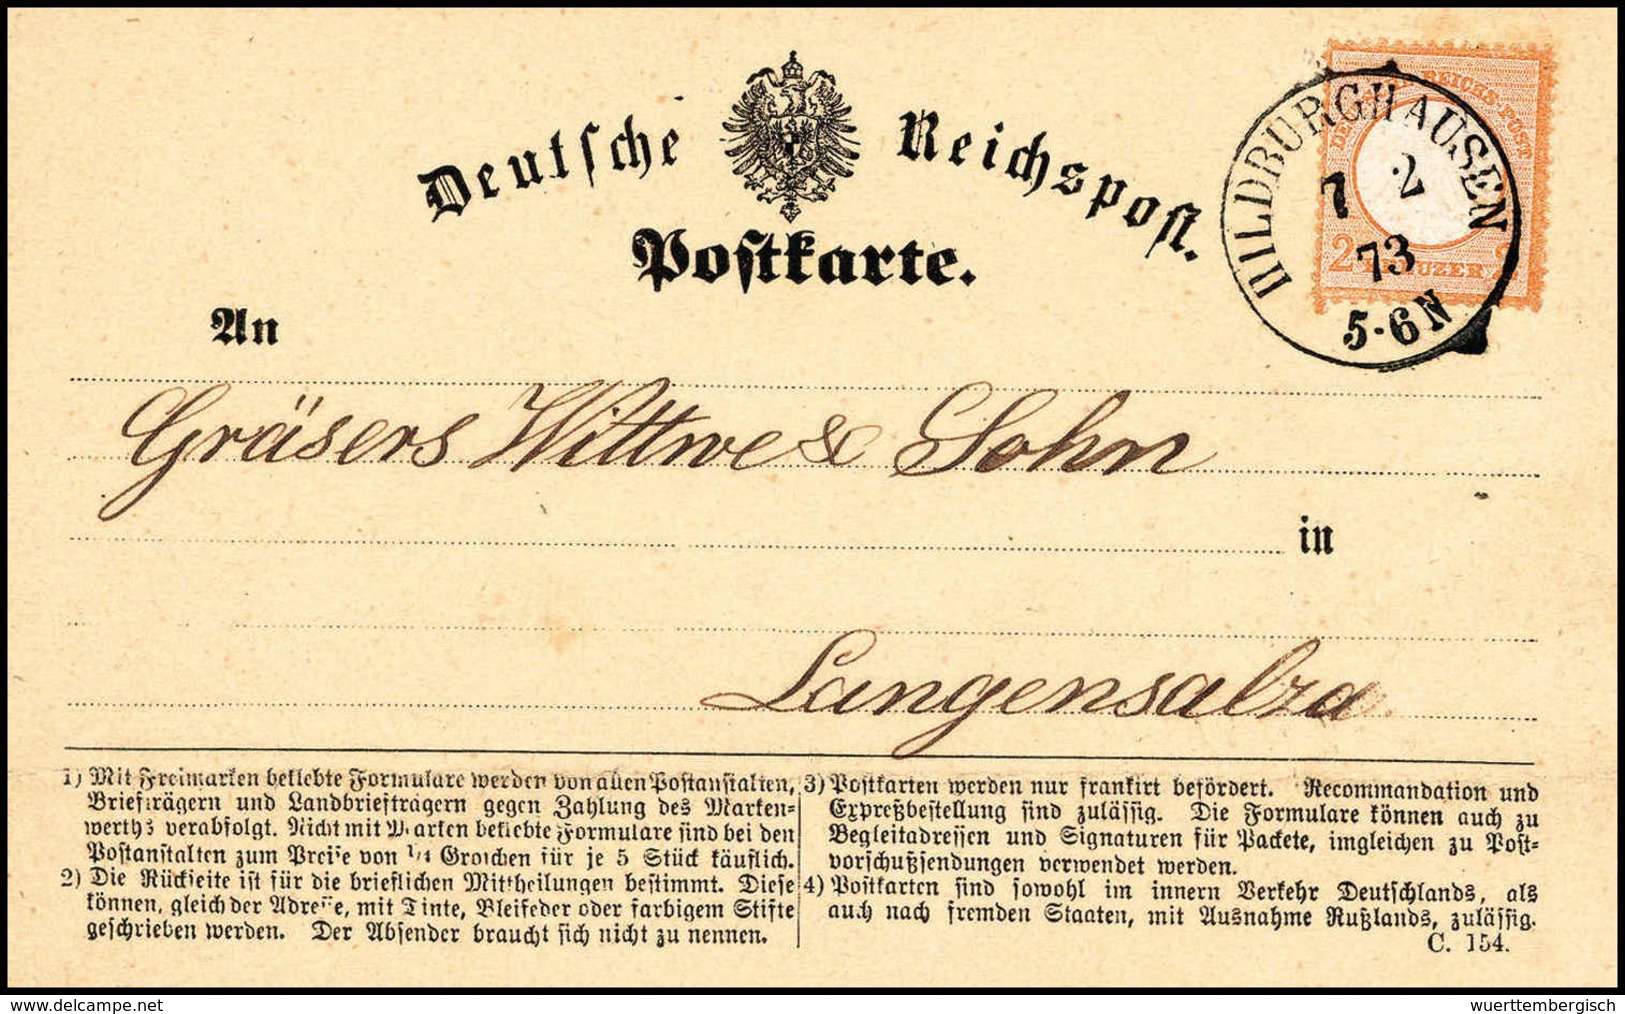 Deutsche Reichspost.
Postkarte.
DEUTSCHE REICHS-POST
2 KREUZER 2
HILDBURGHAUSEN
7 2
73
5-6 N
An
Gräsers Wittwe & Sohn
in
Langensalza
1) Mit Freimarken beklebte Formulare werden von allen Postanstalten,
Briefträgern und Landbriefträgern gegen Zahlung des Marken-
werths verabfolgt. Nicht mit Marken beklebte Formulare sind bei den
Postanstalten zum Preise von 1/4 Groschen für je 5 Stück käuflich.
2) Die Rückseite ist für die brieflichen Mittheilungen bestimmt. Diese
können, gleich der Adresse, mit Tinte, Bleifeder oder farbigem Stifte
geschrieben werden. Der Absender braucht sich nicht zu nennen.
3) Postkarten werden nur frankirt befördert. Recommandation und
Expreßbestellung sind zulässig. Die Formulare können auch zu
Begleitadressen und Signaturen für Packete, imgleichen zu Post-
vorschußsendungen verwendet werden.
4) Postkarten sind sowohl im innern Verkehr Deutschlands, als
auch nach fremden Staaten, mit Ausnahme Rußlands, zulässig.
C. 154.
www.delcampe.net
wuerttembergisch